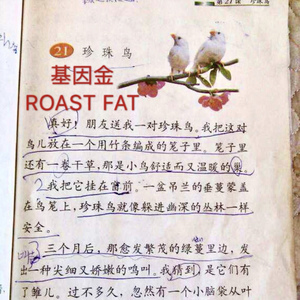 第21课 珍珠鸟
21 珍珠鸟
基因金
ROAST FAT
真好！朋友送我一对珍珠鸟。我把这对
鸟儿放在一个用竹条编成的笼子里。笼子里
还有一卷干草，那是小鸟舒适而又温暖的巢。
我把它挂在窗前。一盆吊兰的垂蔓蒙盖
在鸟笼上，珍珠鸟就像躲进幽深的丛林一样
安全。
三个月后，那愈发繁茂的绿蔓里边，发
出一种尖细又娇嫩的鸣叫。我猜到是它们有
了雏儿。过不多久，忽然有一个小脑袋从叶